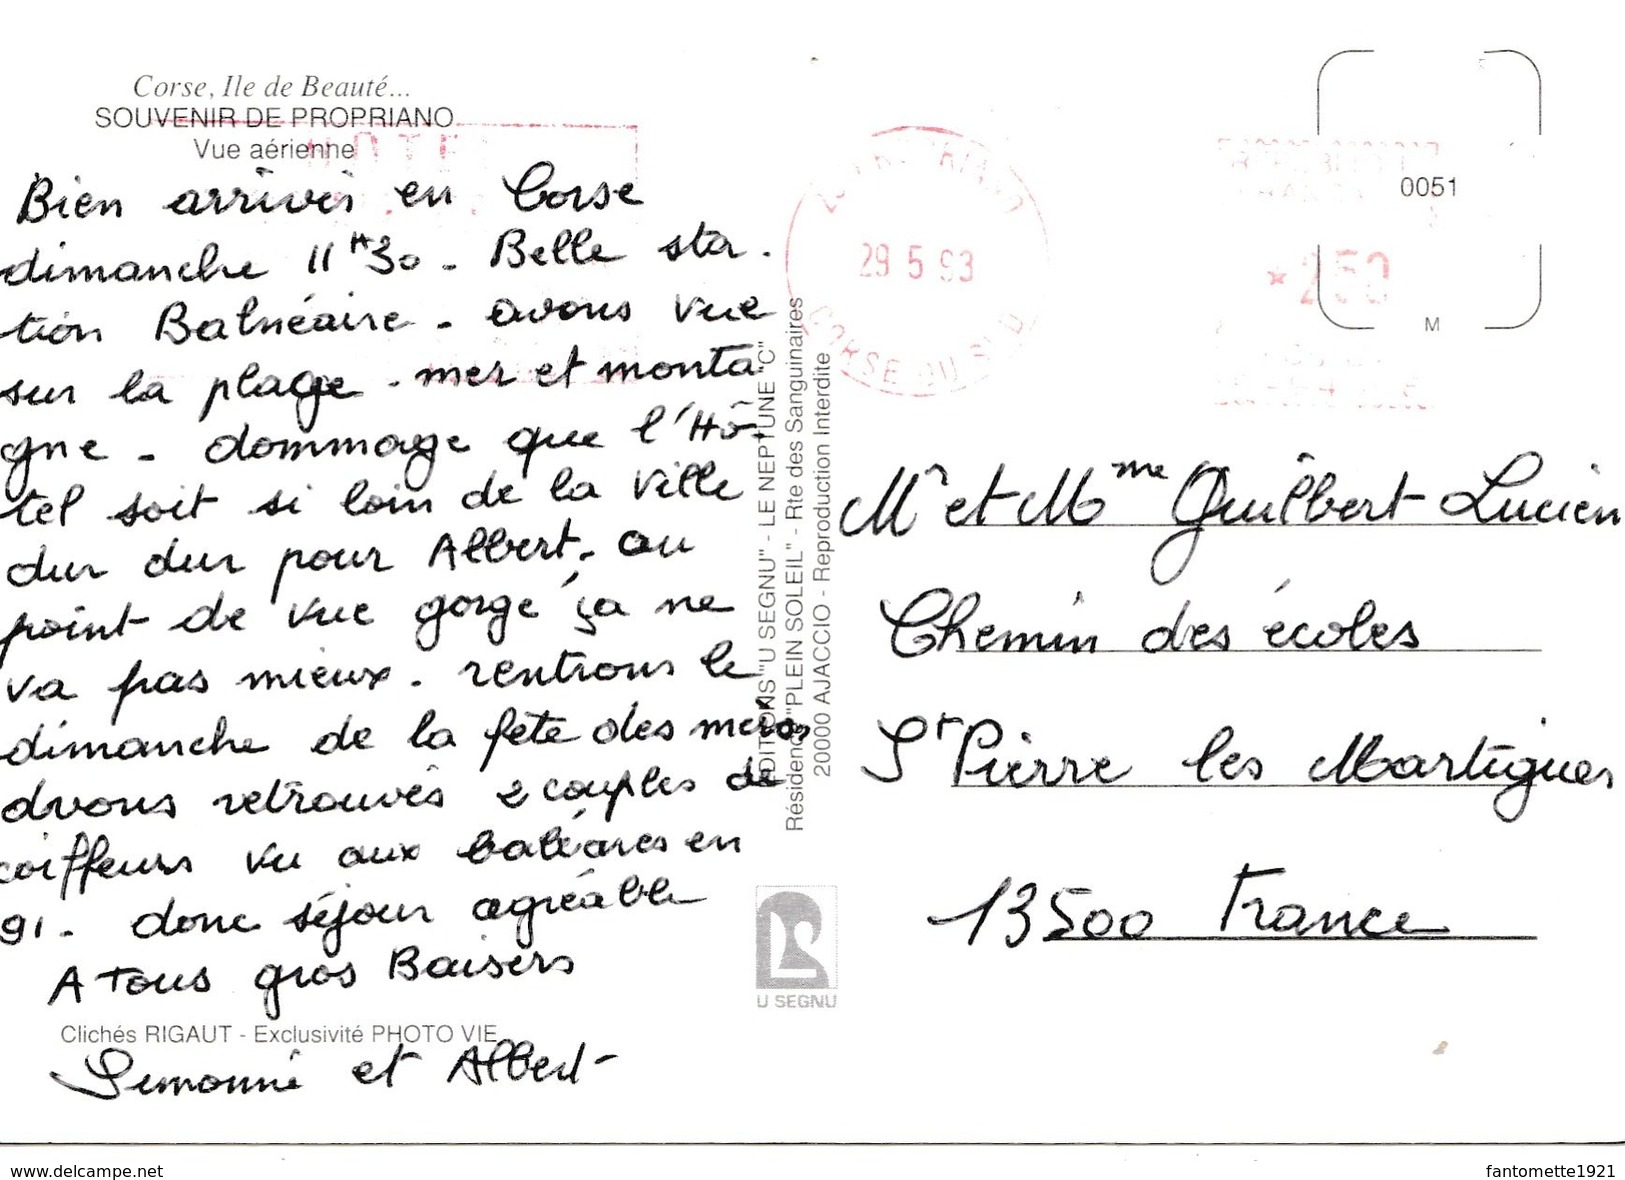 Corse, Ile de Beauté...
SOUVENIR DE PROPRIANO
Vue aérienne
Bien arrivés en Corse
dimanche 11H30 - Belle sta-
tion Balnéaire - avons vue
sur la plage - mer et monta
gne - dommage que l'Hô-
tel soit si loin de la ville
dur dur pour Albert - au
point de vue gorge ça ne
va pas mieux - rentrons le
dimanche de la fête des mères
avons retrouvés 2 couples de
coiffeurs vu aux baléares en
91 - donc séjour agréable
A tous gros Baisers
Clichés RIGAUT - Exclusivité PHOTO VIE
Simonne et Albert
EDITIONS "U SEGNU" - LE NEPTUNE "C"
Résidence "PLEIN SOLEIL" - Rte des Sanguinaires
20000 AJACCIO - Reproduction Interdite
U SEGNU
29 5 93
CORSE DU SUD
0051
* 250
M
Mr et Mme Guilbert Lucien
Chemin des écoles
St Pierre les Martigues
13500 France
www.delcampe.net
fantomette1921